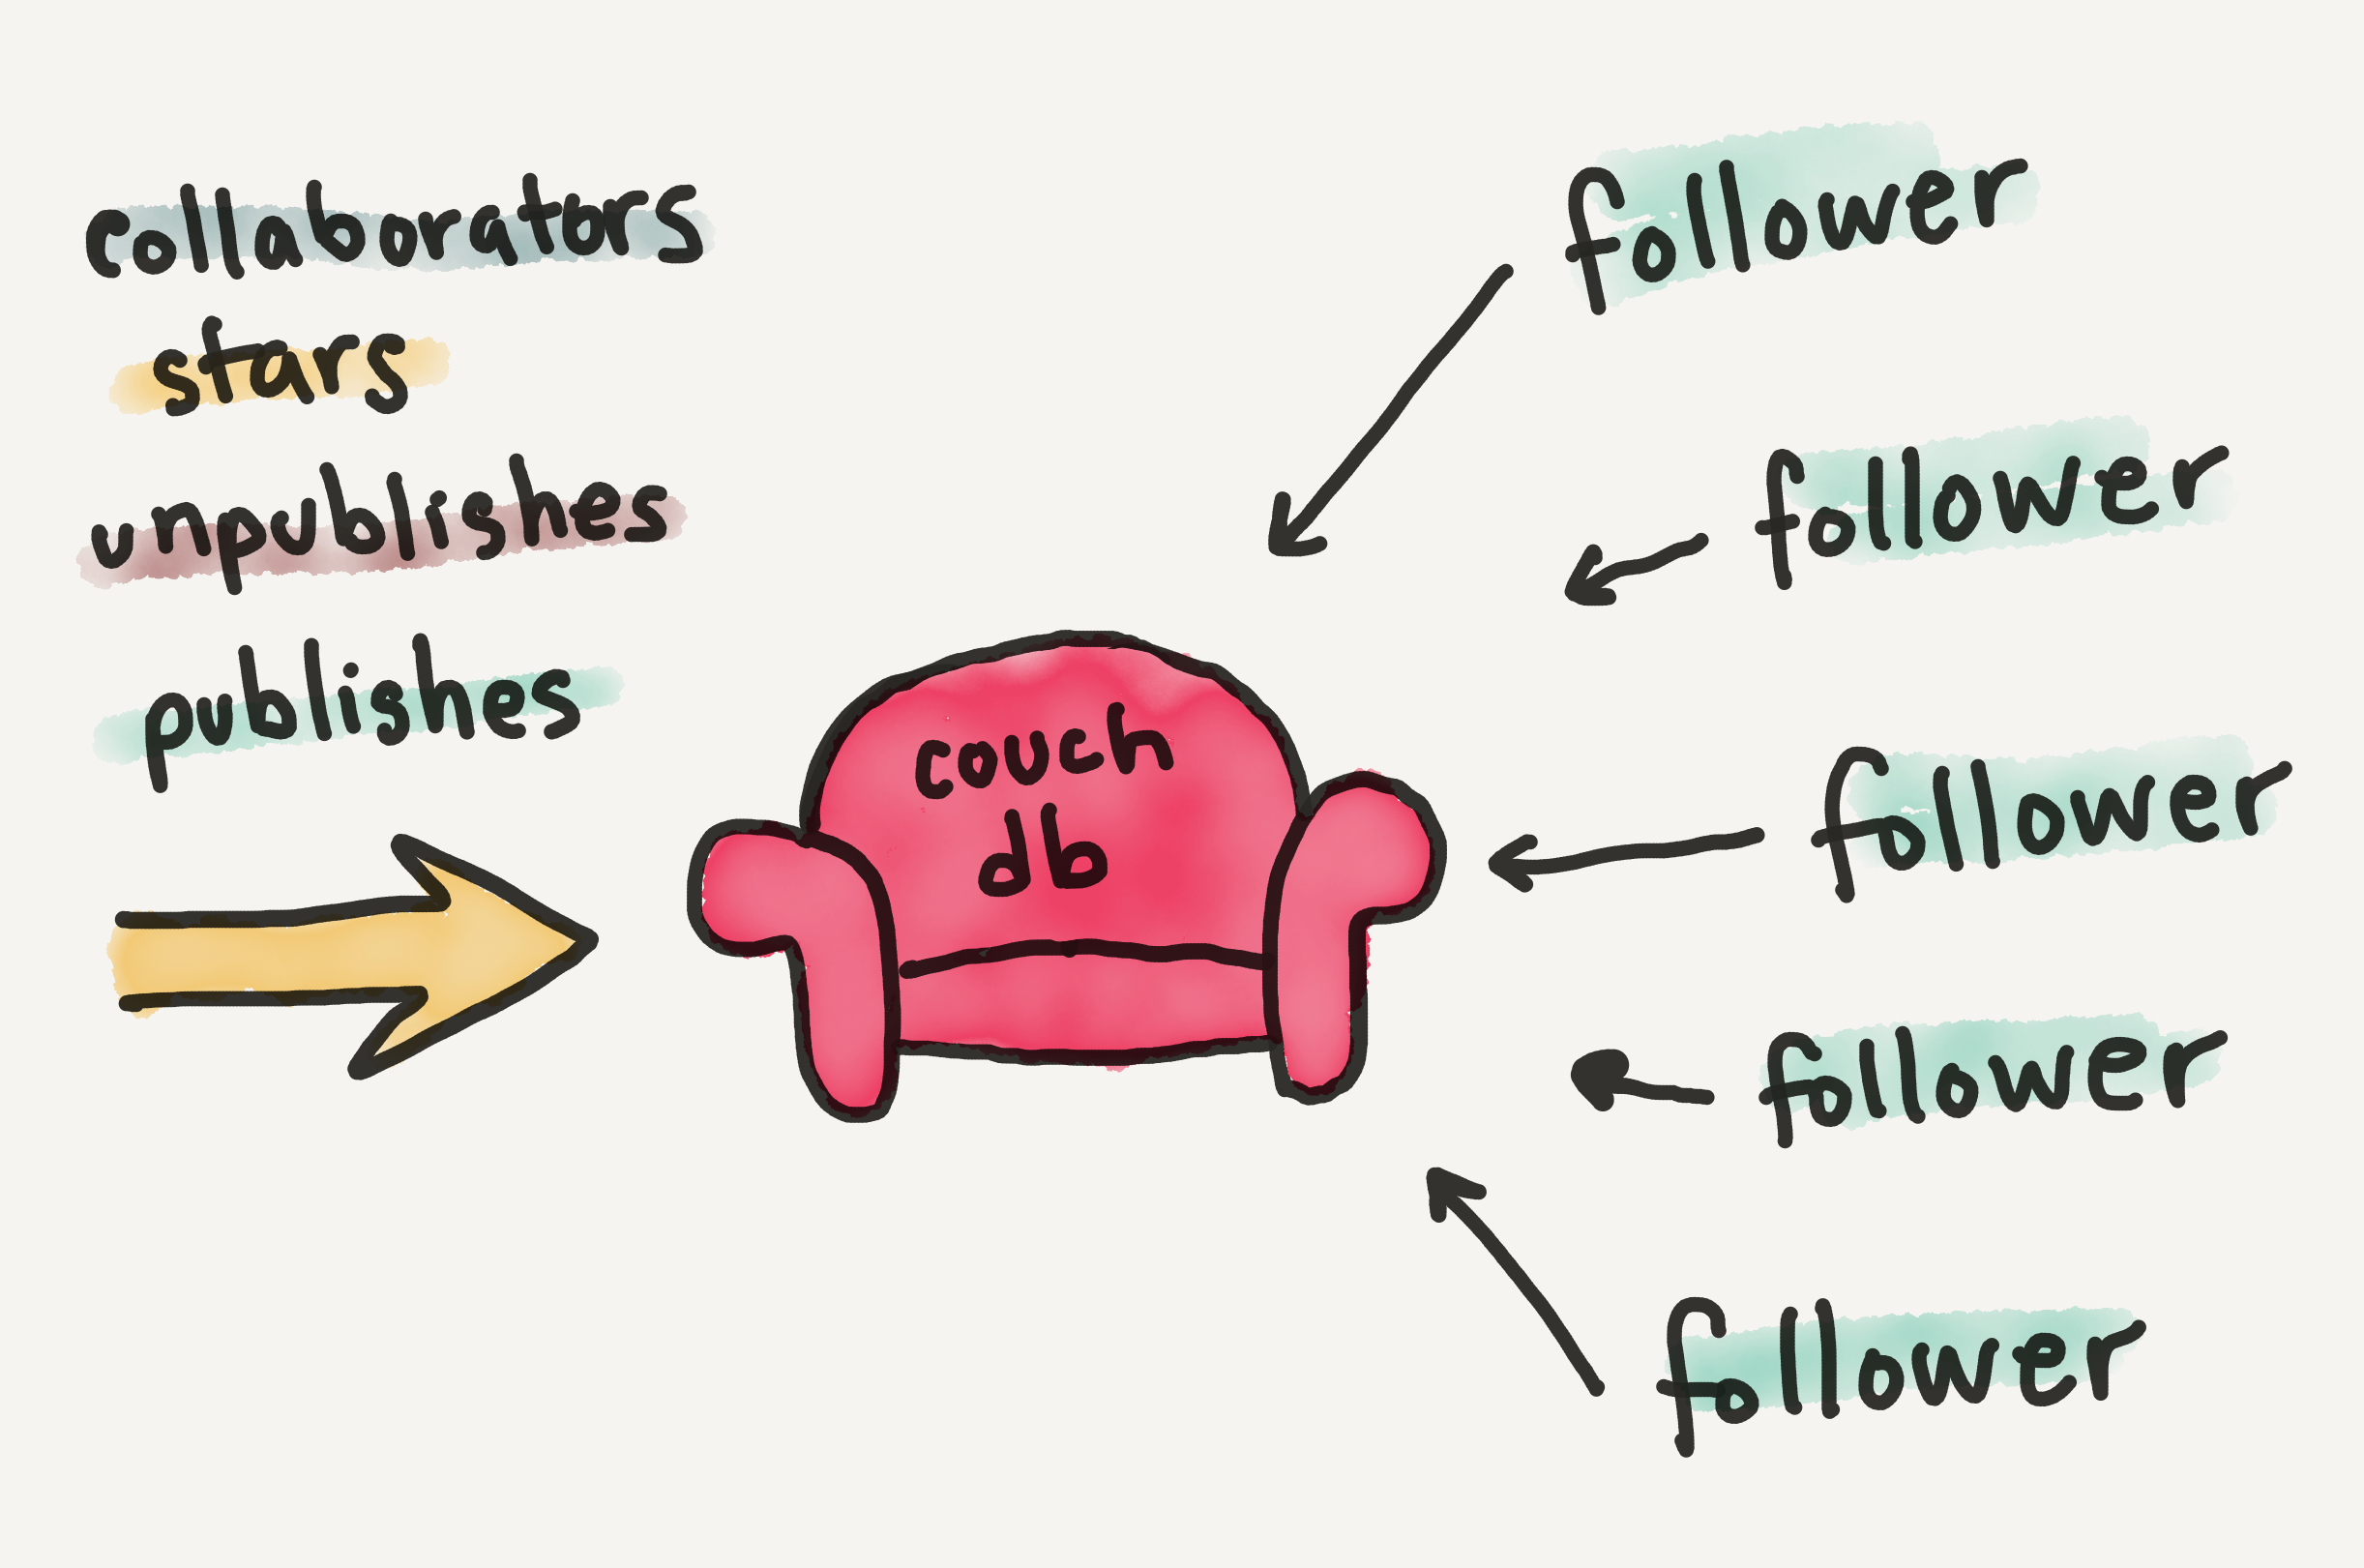 collaborators
stars
unpublishes
publishes
couch
db
follower
follower
follower
follower
follower